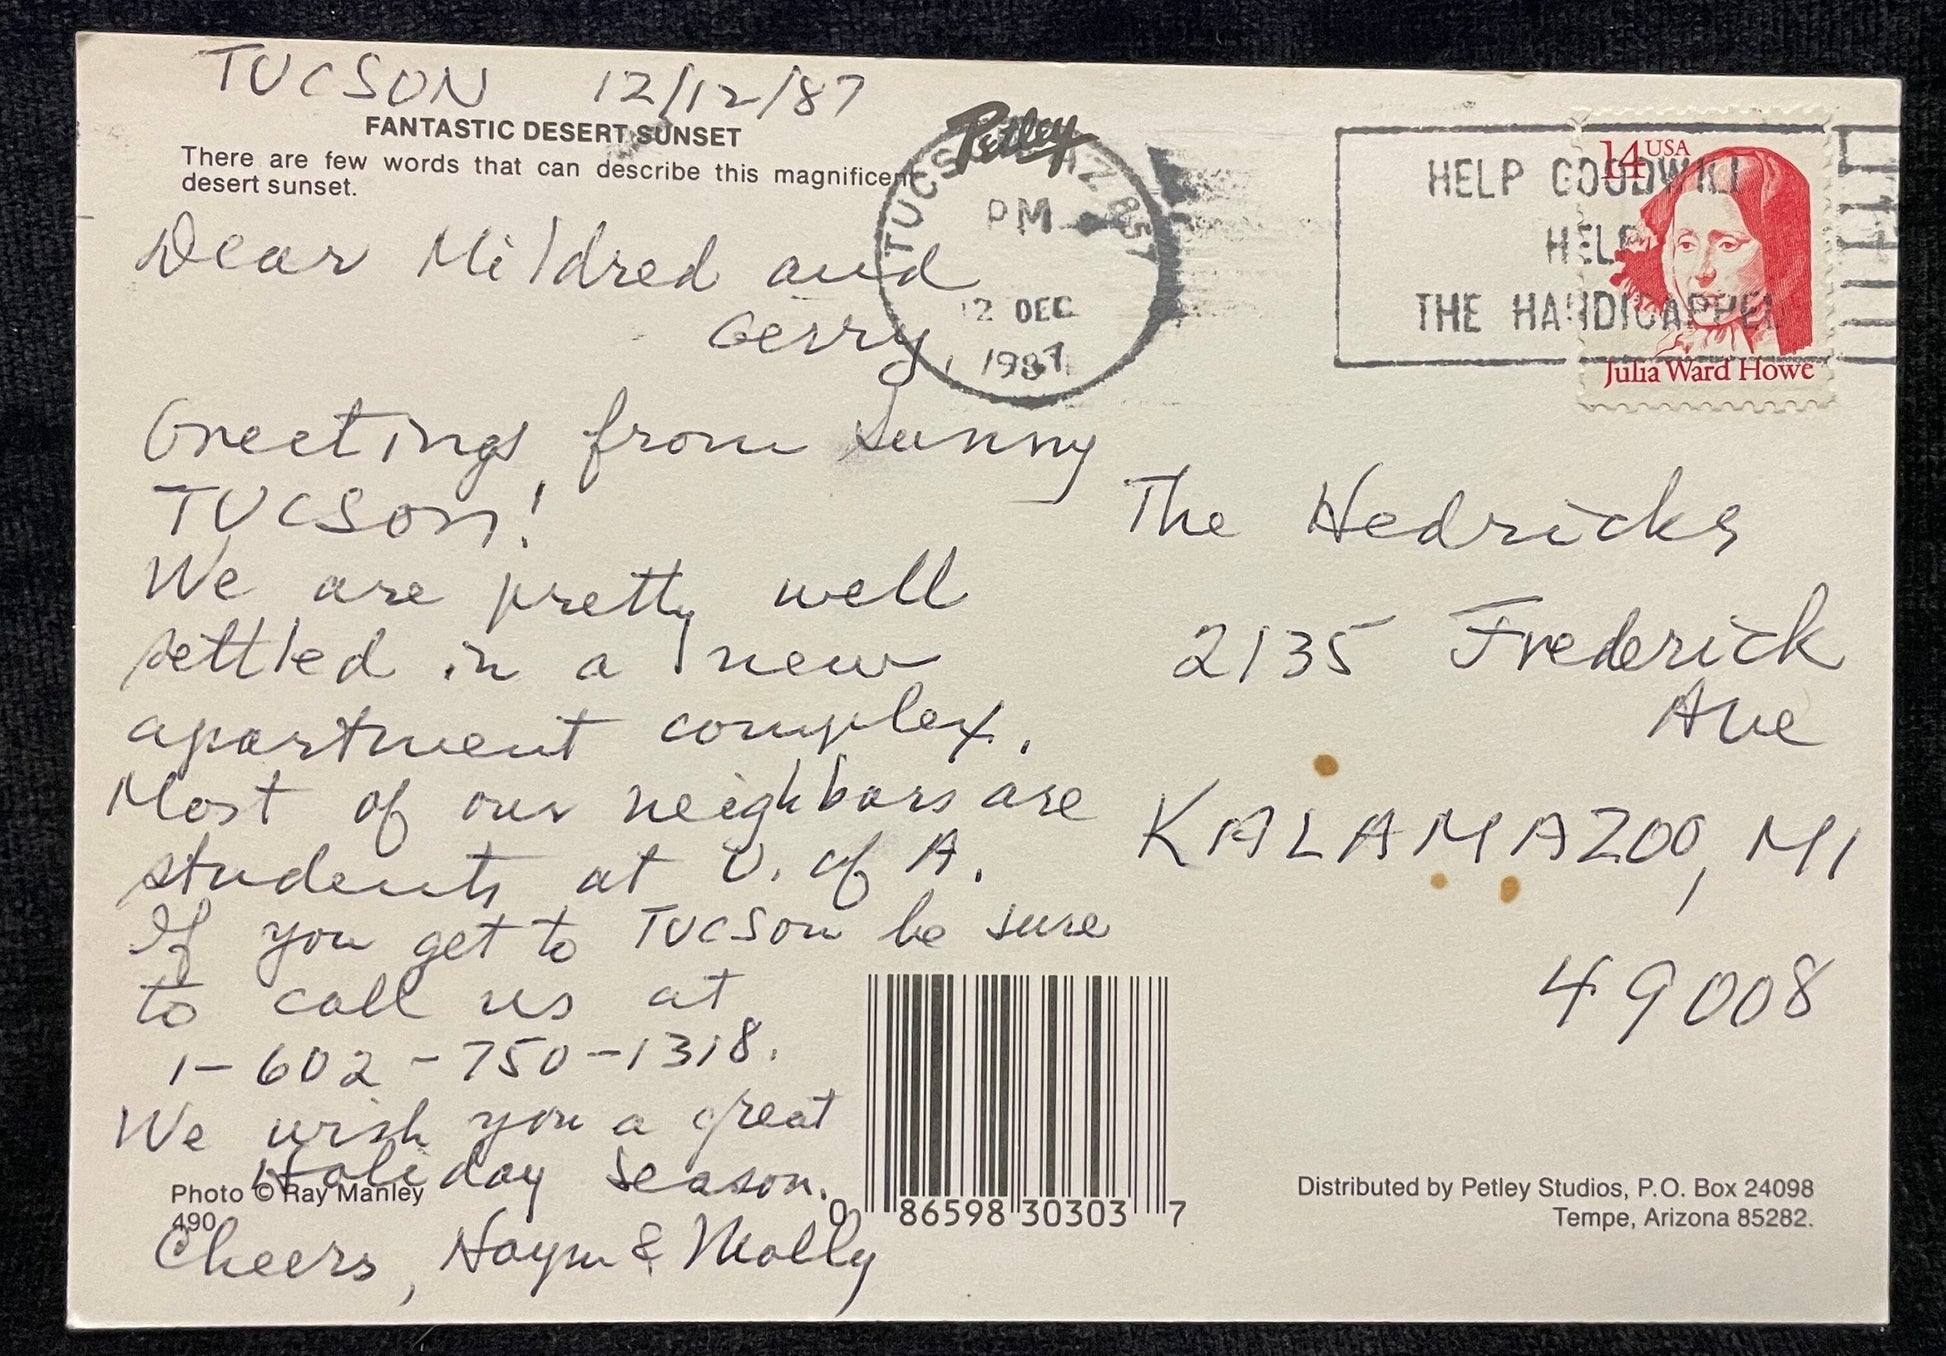 TUCSON 12/12/87
FANTASTIC DESERT SUNSET
There are few words that can describe this magnificent
desert sunset.
Dear Mildred and
Gerry,
Greetings from Sunny
TUCSON!
We are pretty well
settled in a new
apartment complex.
Most of our neighbors are
students at U. of A.
If you get to TUCSON be sure
to call us at
1-602-750-1318.
We wish you a great
Holiday Season.
Photo © Ray Manley
490
Cheers, Haym & Molly
Petley
TUCSON AZ 857
PM
12 DEC
1987
HELP GOODWILL
HELP
THE HANDICAPPED
14 USA
Julia Ward Howe
The Hedricks
2135 Frederick
Ave
KALAMAZOO, MI
49008
0 86598 30303 7
Distributed by Petley Studios, P.O. Box 24098
Tempe, Arizona 85282.